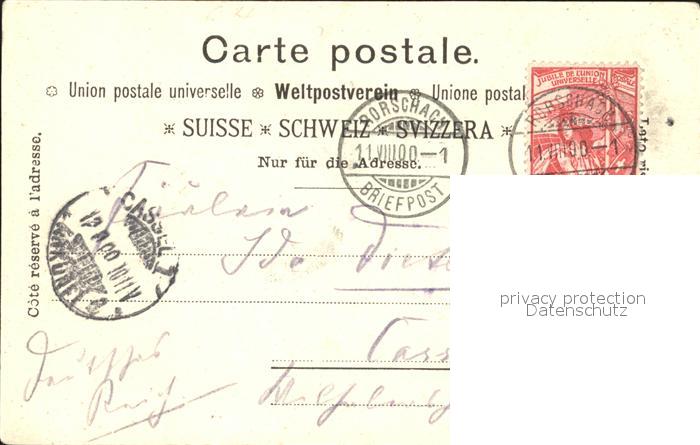 Carte postale.
Union postale universelle Weltpostverein Unione postal
* SUISSE * SCHWEIZ * SVIZZERA *
Nur für die Adresse.
Côté réservé à l'adresse.
JUBILÉ DE L'UNION
POSTALE
UNIVERSELLE
RORSCHACH
11.VIII.00-1
BRIEFPOST
RORSCHACH
11.VIII.00-1
CASSEL 1
Fräulein
Ida
Cass
Wilhelms
Deutsches
Reich
privacy protection
Datenschutz